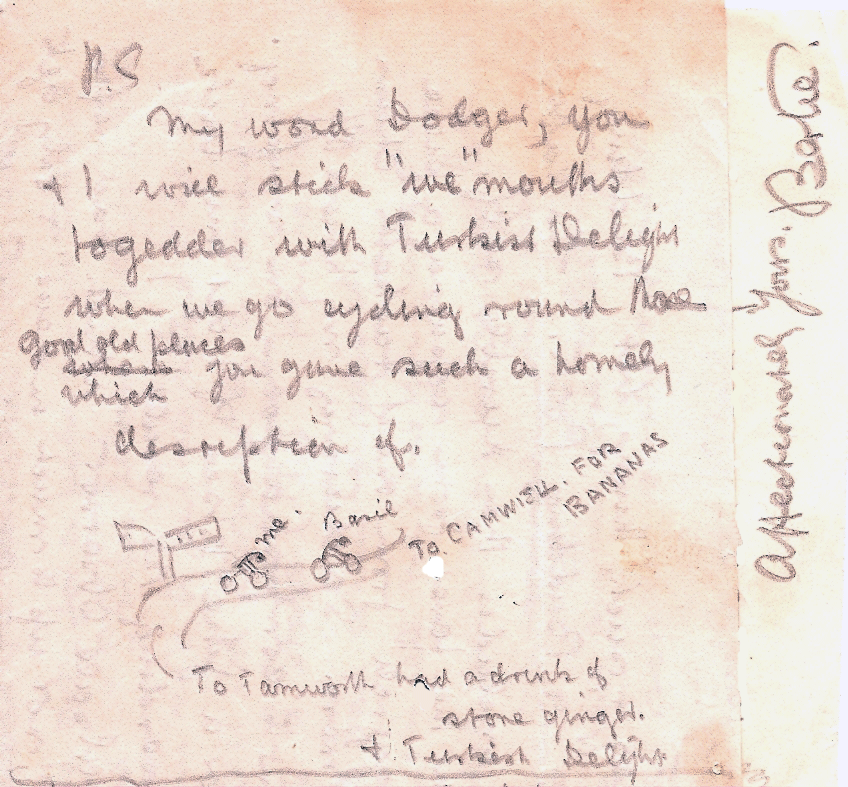 P.S
My word Dodger, you
+ I will stick "we" mouths
togedder with Turkish Delight
when we go cycling round those
good old places
which you gave such a homely
description of.
me. Basil
TO CAMWELL. FOR
BANANAS
To Tamworth had a drink of
stone ginger.
+ Turkish Delight
Affectionately Yours, Bertie.